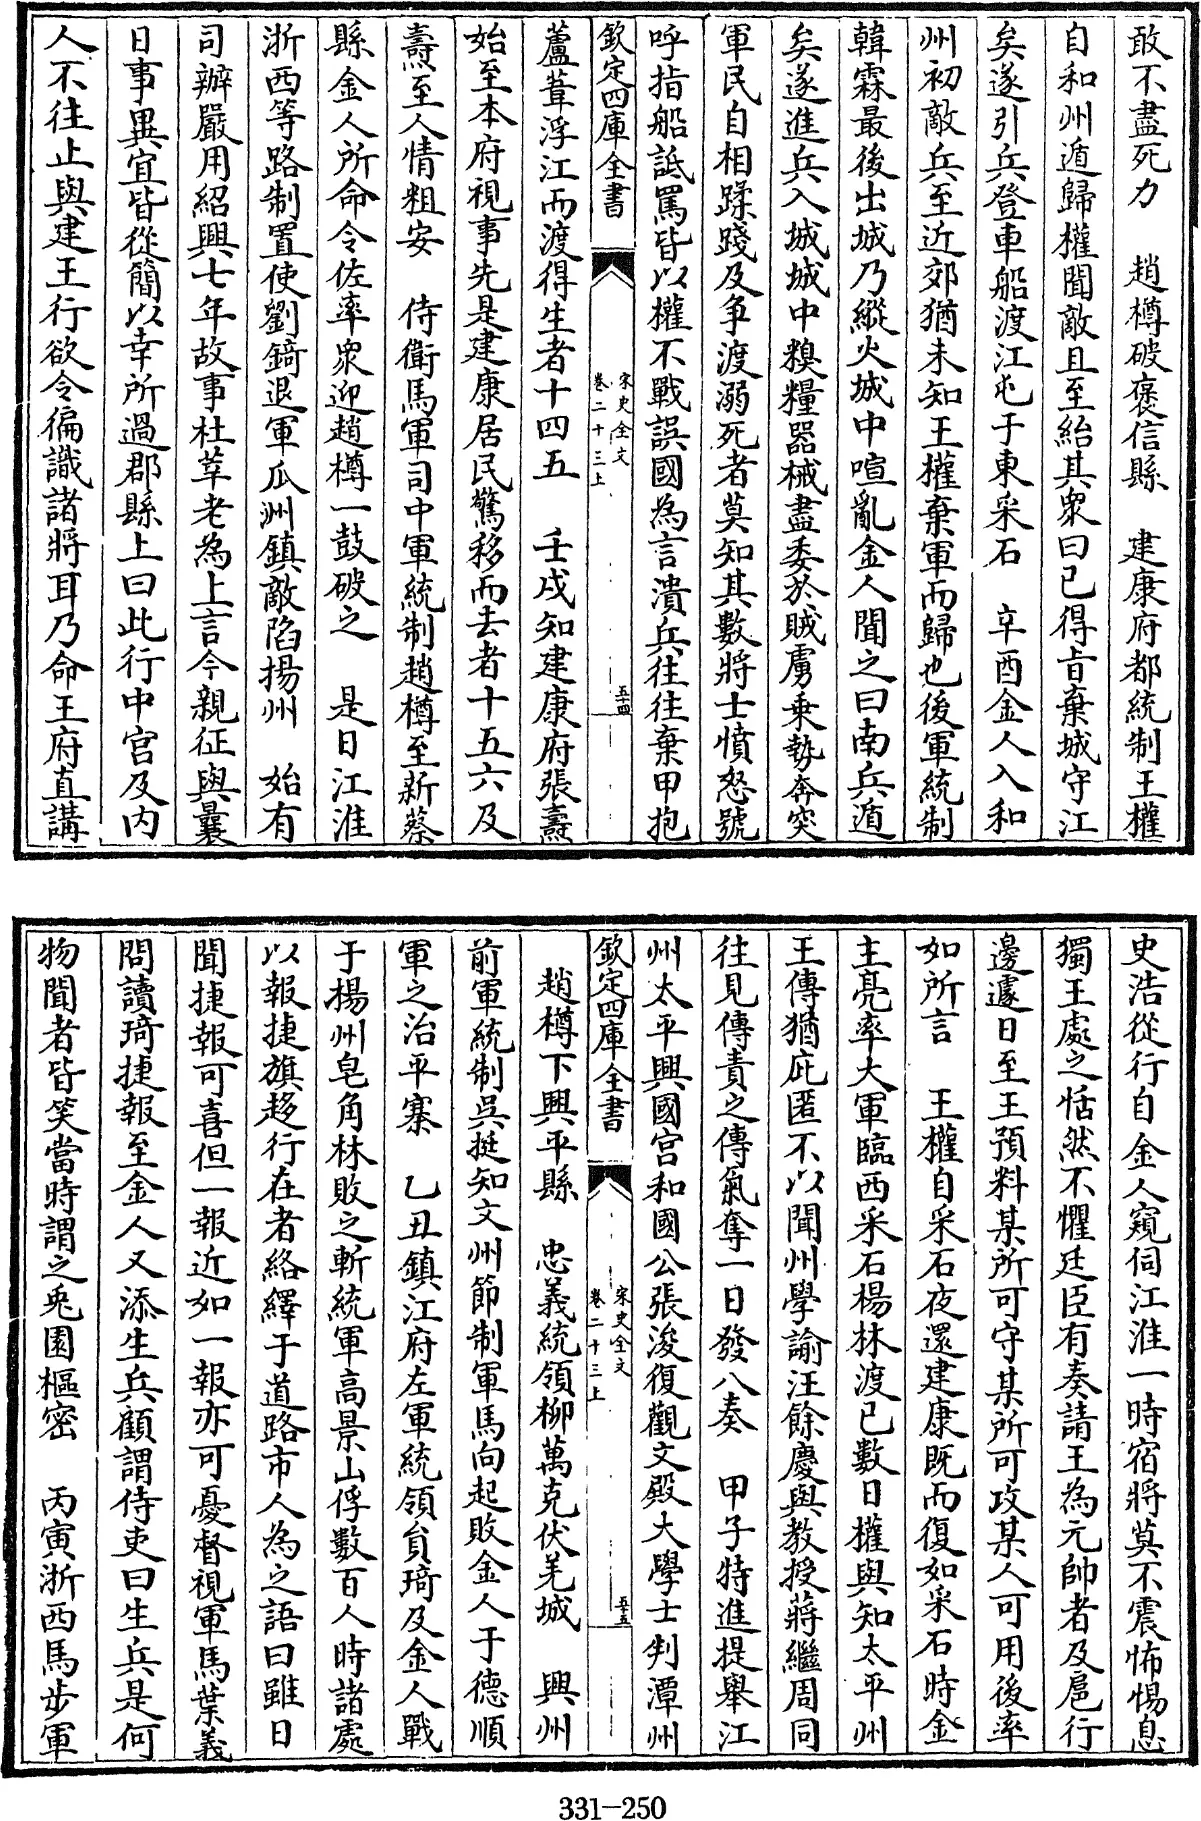 敢不盡死力　趙樽破褒信縣　建康府都統制王權
自和州遁歸權聞敵且至紿其衆曰已得旨棄城守江
矣遂引兵登車船渡江屯于東采石　辛酉金人入和
州初敵兵至近郊猶未知王權棄軍而歸也後軍統制
韓霖最後出城乃縱火城中喧亂金人聞之曰南兵遁
矣遂進兵入城城中糗糧器械盡委於賊虜乗勢奔突
軍民自相蹂踐及爭渡溺死者莫知其數將士憤怒號
呼指船詆罵皆以權不戰誤國為言潰兵往往棄甲抱
欽定四庫全書
宋史全文
卷二十三上
五十四
蘆葦浮江而渡得生者十四五　壬戌知建康府張燾
始至本府視事先是建康居民驚移而去者十五六及
燾至人情粗安　侍衛馬軍司中軍統制趙樽至新蔡
縣金人所命令佐率衆迎趙樽一鼓破之　是日江淮
浙西等路制置使劉錡退軍瓜洲鎮敵陷揚州　始有
司辦嚴用紹興七年故事杜莘老為上言今親征與曩
日事異宜皆從簡以幸所過郡縣上曰此行中宮及内
人不往止與建王行欲令徧識諸將耳乃命王府直講
史浩從行自金人窺伺江淮一時宿將莫不震怖惕息
獨王處之恬然不懼廷臣有奏請王為元帥者及扈行
邊遽日至王預料某所可守某所可攻某人可用後率
如所言　王權自采石夜還建康既而復如采石時金
主亮率大軍臨西采石楊林渡已數日權與知太平州
王傳猶庇匿不以聞州學諭汪餘慶與教授蔣繼周同
往見傳責之傳氣奪一日發八奏　甲子特進提舉江
州太平興國宮和國公張浚復觀文殿大學士判潭州
欽定四庫全書
宋史全文
卷二十三上
五十五
趙樽下興平縣　忠義統領栁萬克伏羌城　興州
前軍統制吳挺知文州節制軍馬向起敗金人于德順
軍之治平寨　乙丑鎮江府左軍統領員琦及金人戰
于揚州皂角林敗之斬統軍高景山俘數百人時諸處
以報捷旗趍行在者絡繹于道路市人為之語曰雖日
聞捷報可喜但一報近如一報亦可憂督視軍馬葉義
問讀琦捷報至金人又添生兵顧謂侍吏曰生兵是何
物聞者皆笑當時謂之兎園樞密　丙寅浙西馬步軍
331-250